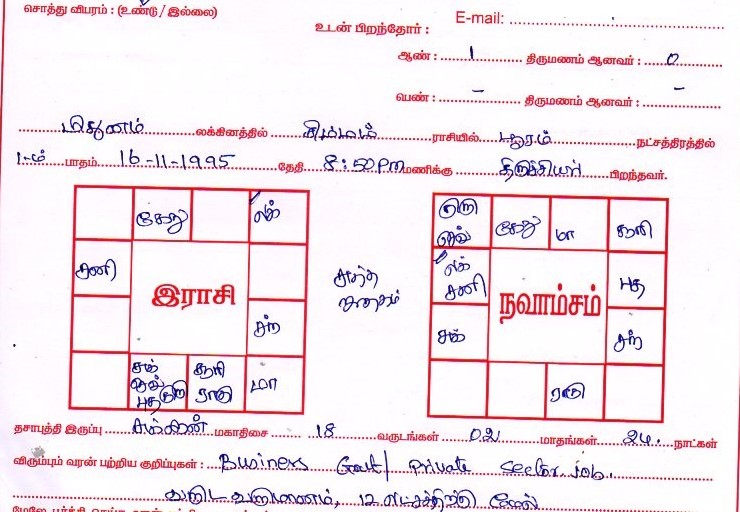 சொத்து விபரம் : (உண்டு / இல்லை)
E-mail:
உடன் பிறந்தோர் :
ஆண் : 1 திருமணம் ஆனவர் : 0
பெண் : - திருமணம் ஆனவர் : -
மிதுனம் லக்கினத்தில் சிம்மம் ராசியில் பூரம் நட்சத்திரத்தில்
1-ம் பாதம் 16-11-1995 தேதி 8:50PM மணிக்கு திருச்சியில் பிறந்தவர்.
கேது லக்
சனி
இராசி
சந்
சுக் செவ் புத குரு சூரி ராகு மா
சுத்த ஜாதகம்
குரு செவ் கேது மா சூரி
லக் சனி புத
நவாம்சம்
சுக் சந்
ராகு
தசாபுத்தி இருப்பு சுக்கிரன் மகாதிசை 18 வருடங்கள் 02 மாதங்கள் 24 நாட்கள்
விரும்பும் வரன் பற்றிய குறிப்புகள் : Business Govt/ Private Sector job.
வருட வருமானம், 12 லட்சத்திற்கு மேல்